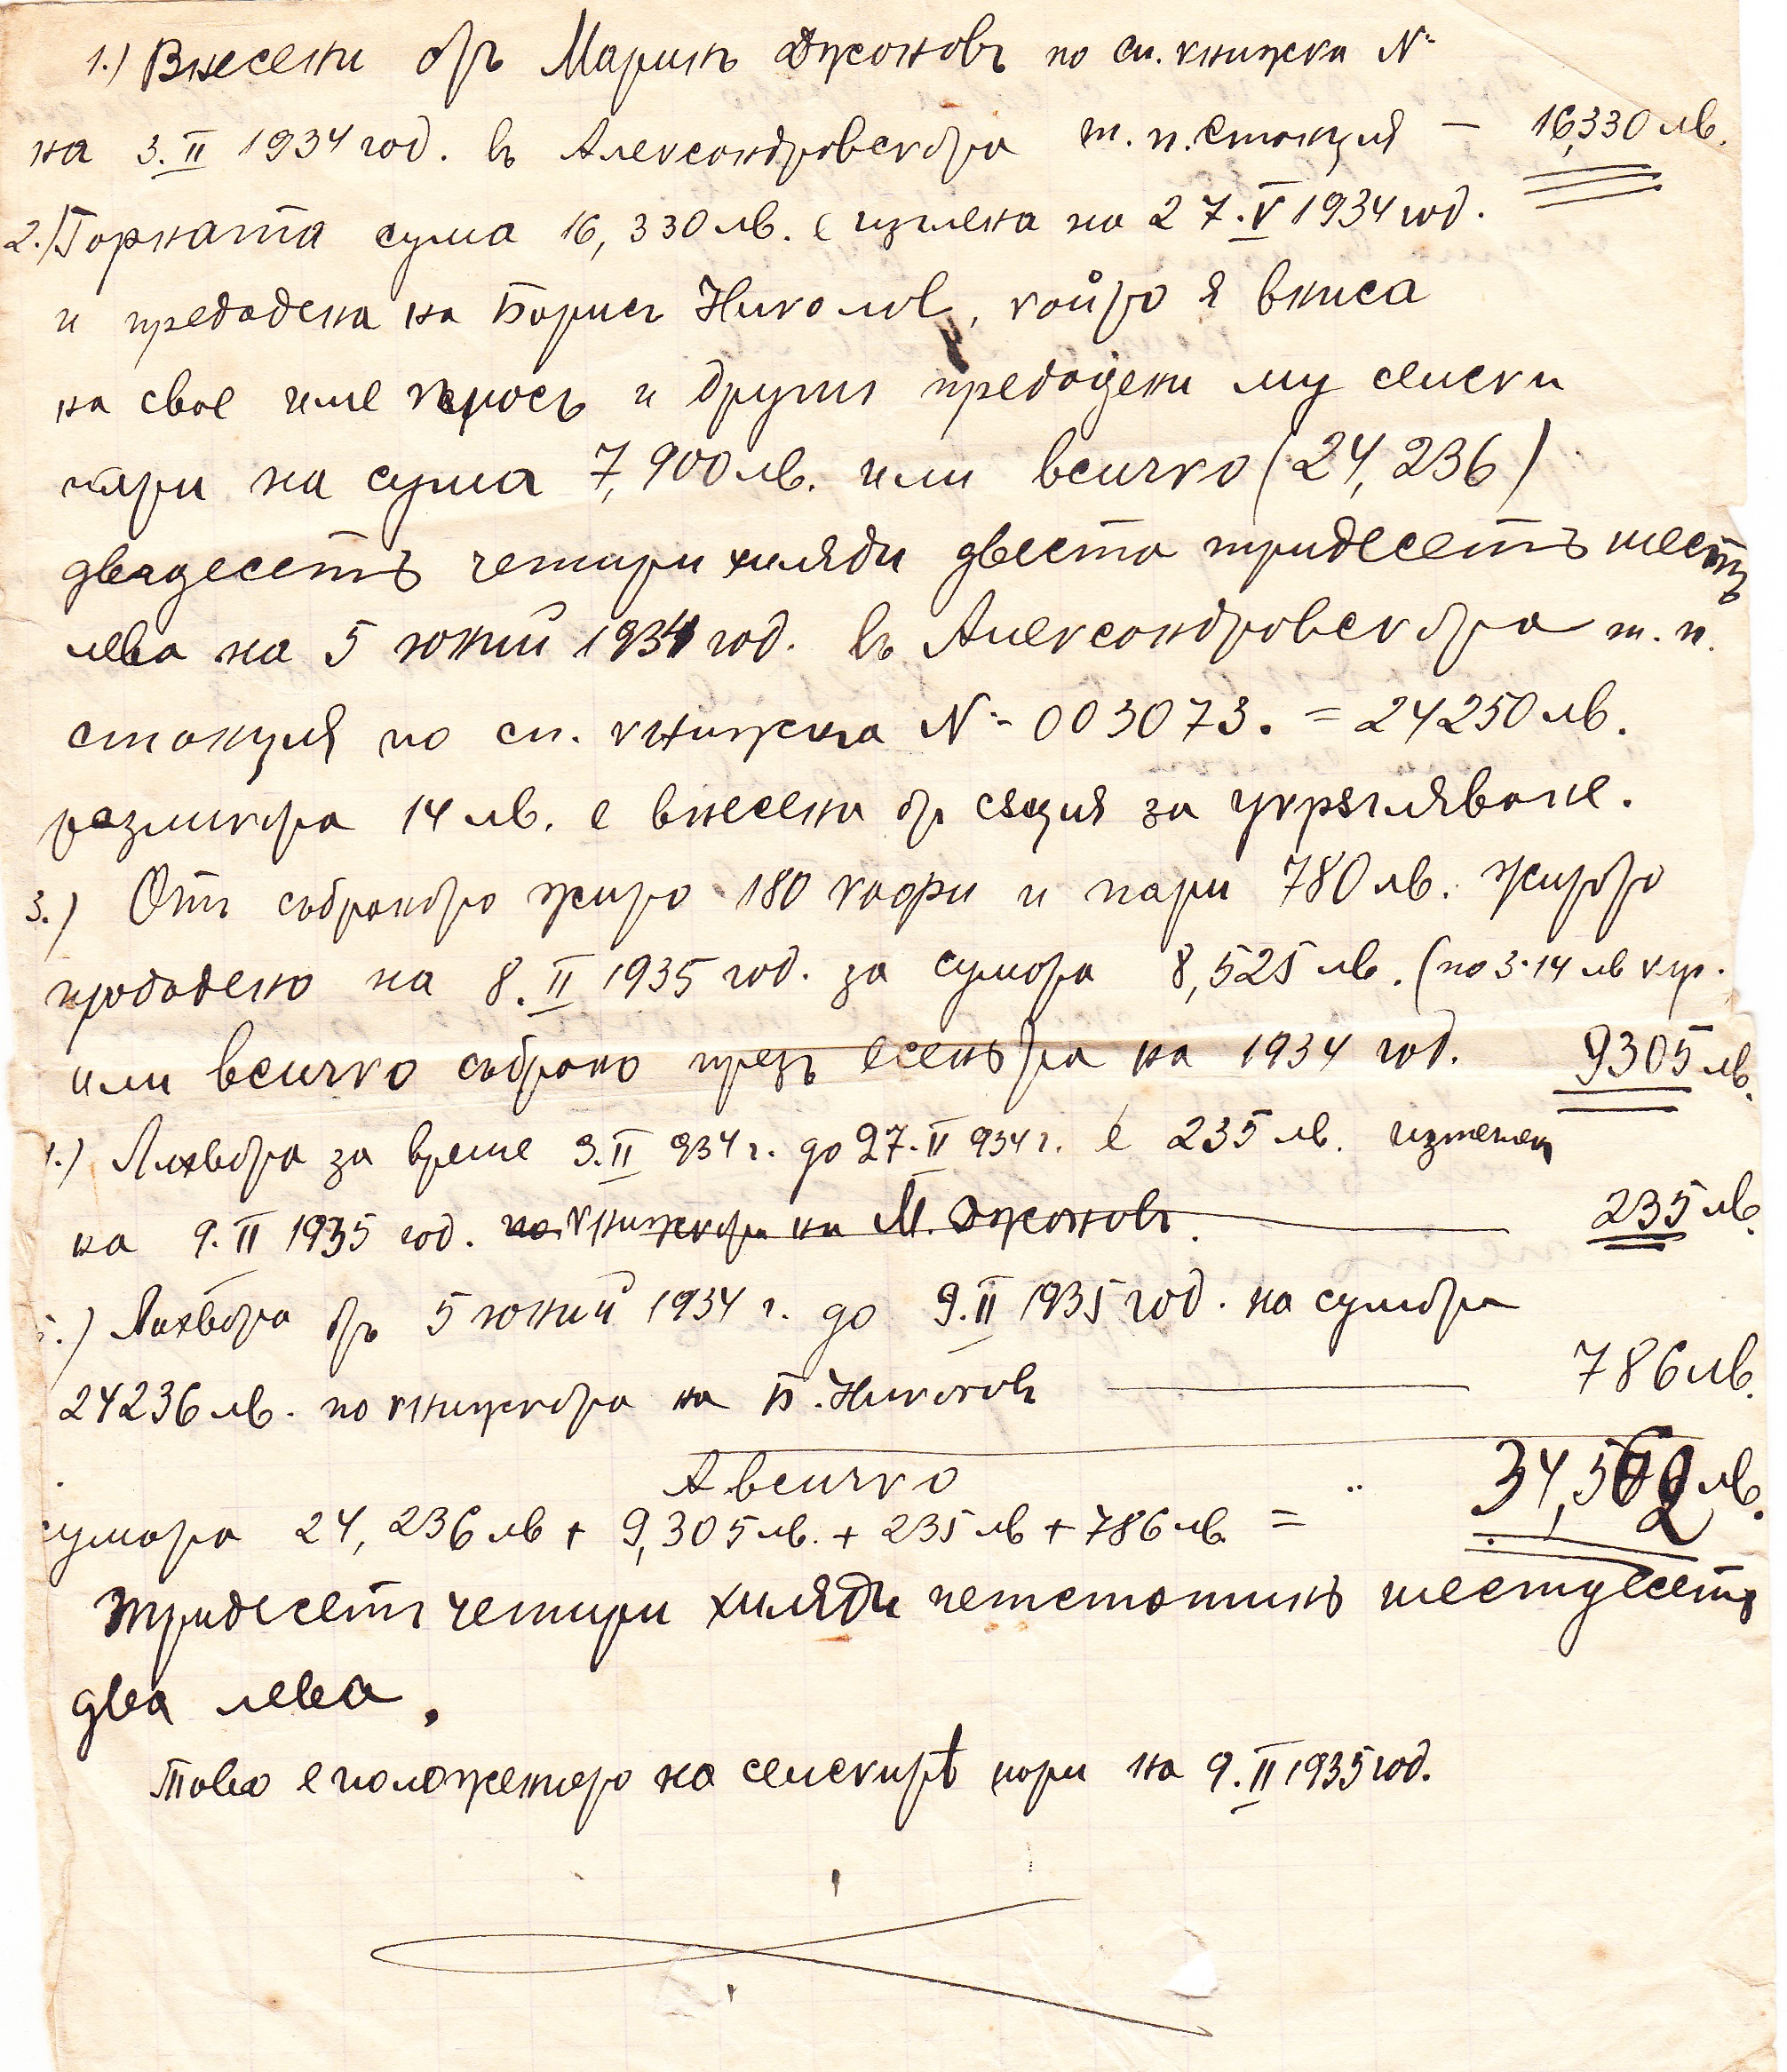 1.) Внесени отъ Маринъ Джоновъ по сп. книжка №
на 3.II 1934 год. въ Александровската т. п. станция – 16,330 лв.
2.) Горната сума 16,330 лв. е изтлена на 27.V 1934 год.
и предадена на Борисъ Николов, който я вписа
на свое име и други предадени му селски
пари на сума 7,900 лв. или всичко (24,236)
двадесетъ четири хиляди двеста тридесетъ шестъ
лева на 5 юний 1934 год. въ Александровската т. п.
станция по сп. книжка № 003073. = 24250 лв.
разликата 14 лв. е внесена от същия за укрѫгляване.
3.) Отъ събраното жито 180 крфи и пари 780 лв. житото
продадено на 8.II 1935 год. за сумата 8,525 лв. (по 3.14 лв кгр.
или всичко събрано презъ есеньта на 1934 год. 9305 лв.
4.) Лихвата за време 3.II 934 г. до 27.II 934 г. е 235 лв. изтеглен
на 9.II 1935 год. по книжката на М. Джоновъ. 235 лв.
5.) Лихвата отъ 5 юний 1934 г. до 9.II 1935 год. на сумата
24236 лв. по книжката на Б. Николовъ 786 лв.
А всичко
сумата 24,236 лв + 9,305 лв. + 235 лв + 786 лв = 34,562 лв.
тридесетъ четири хиляди петстотинъ шестдесетъ
два лева.
Това е положението на селскитѣ пари на 9.II 1935 год.